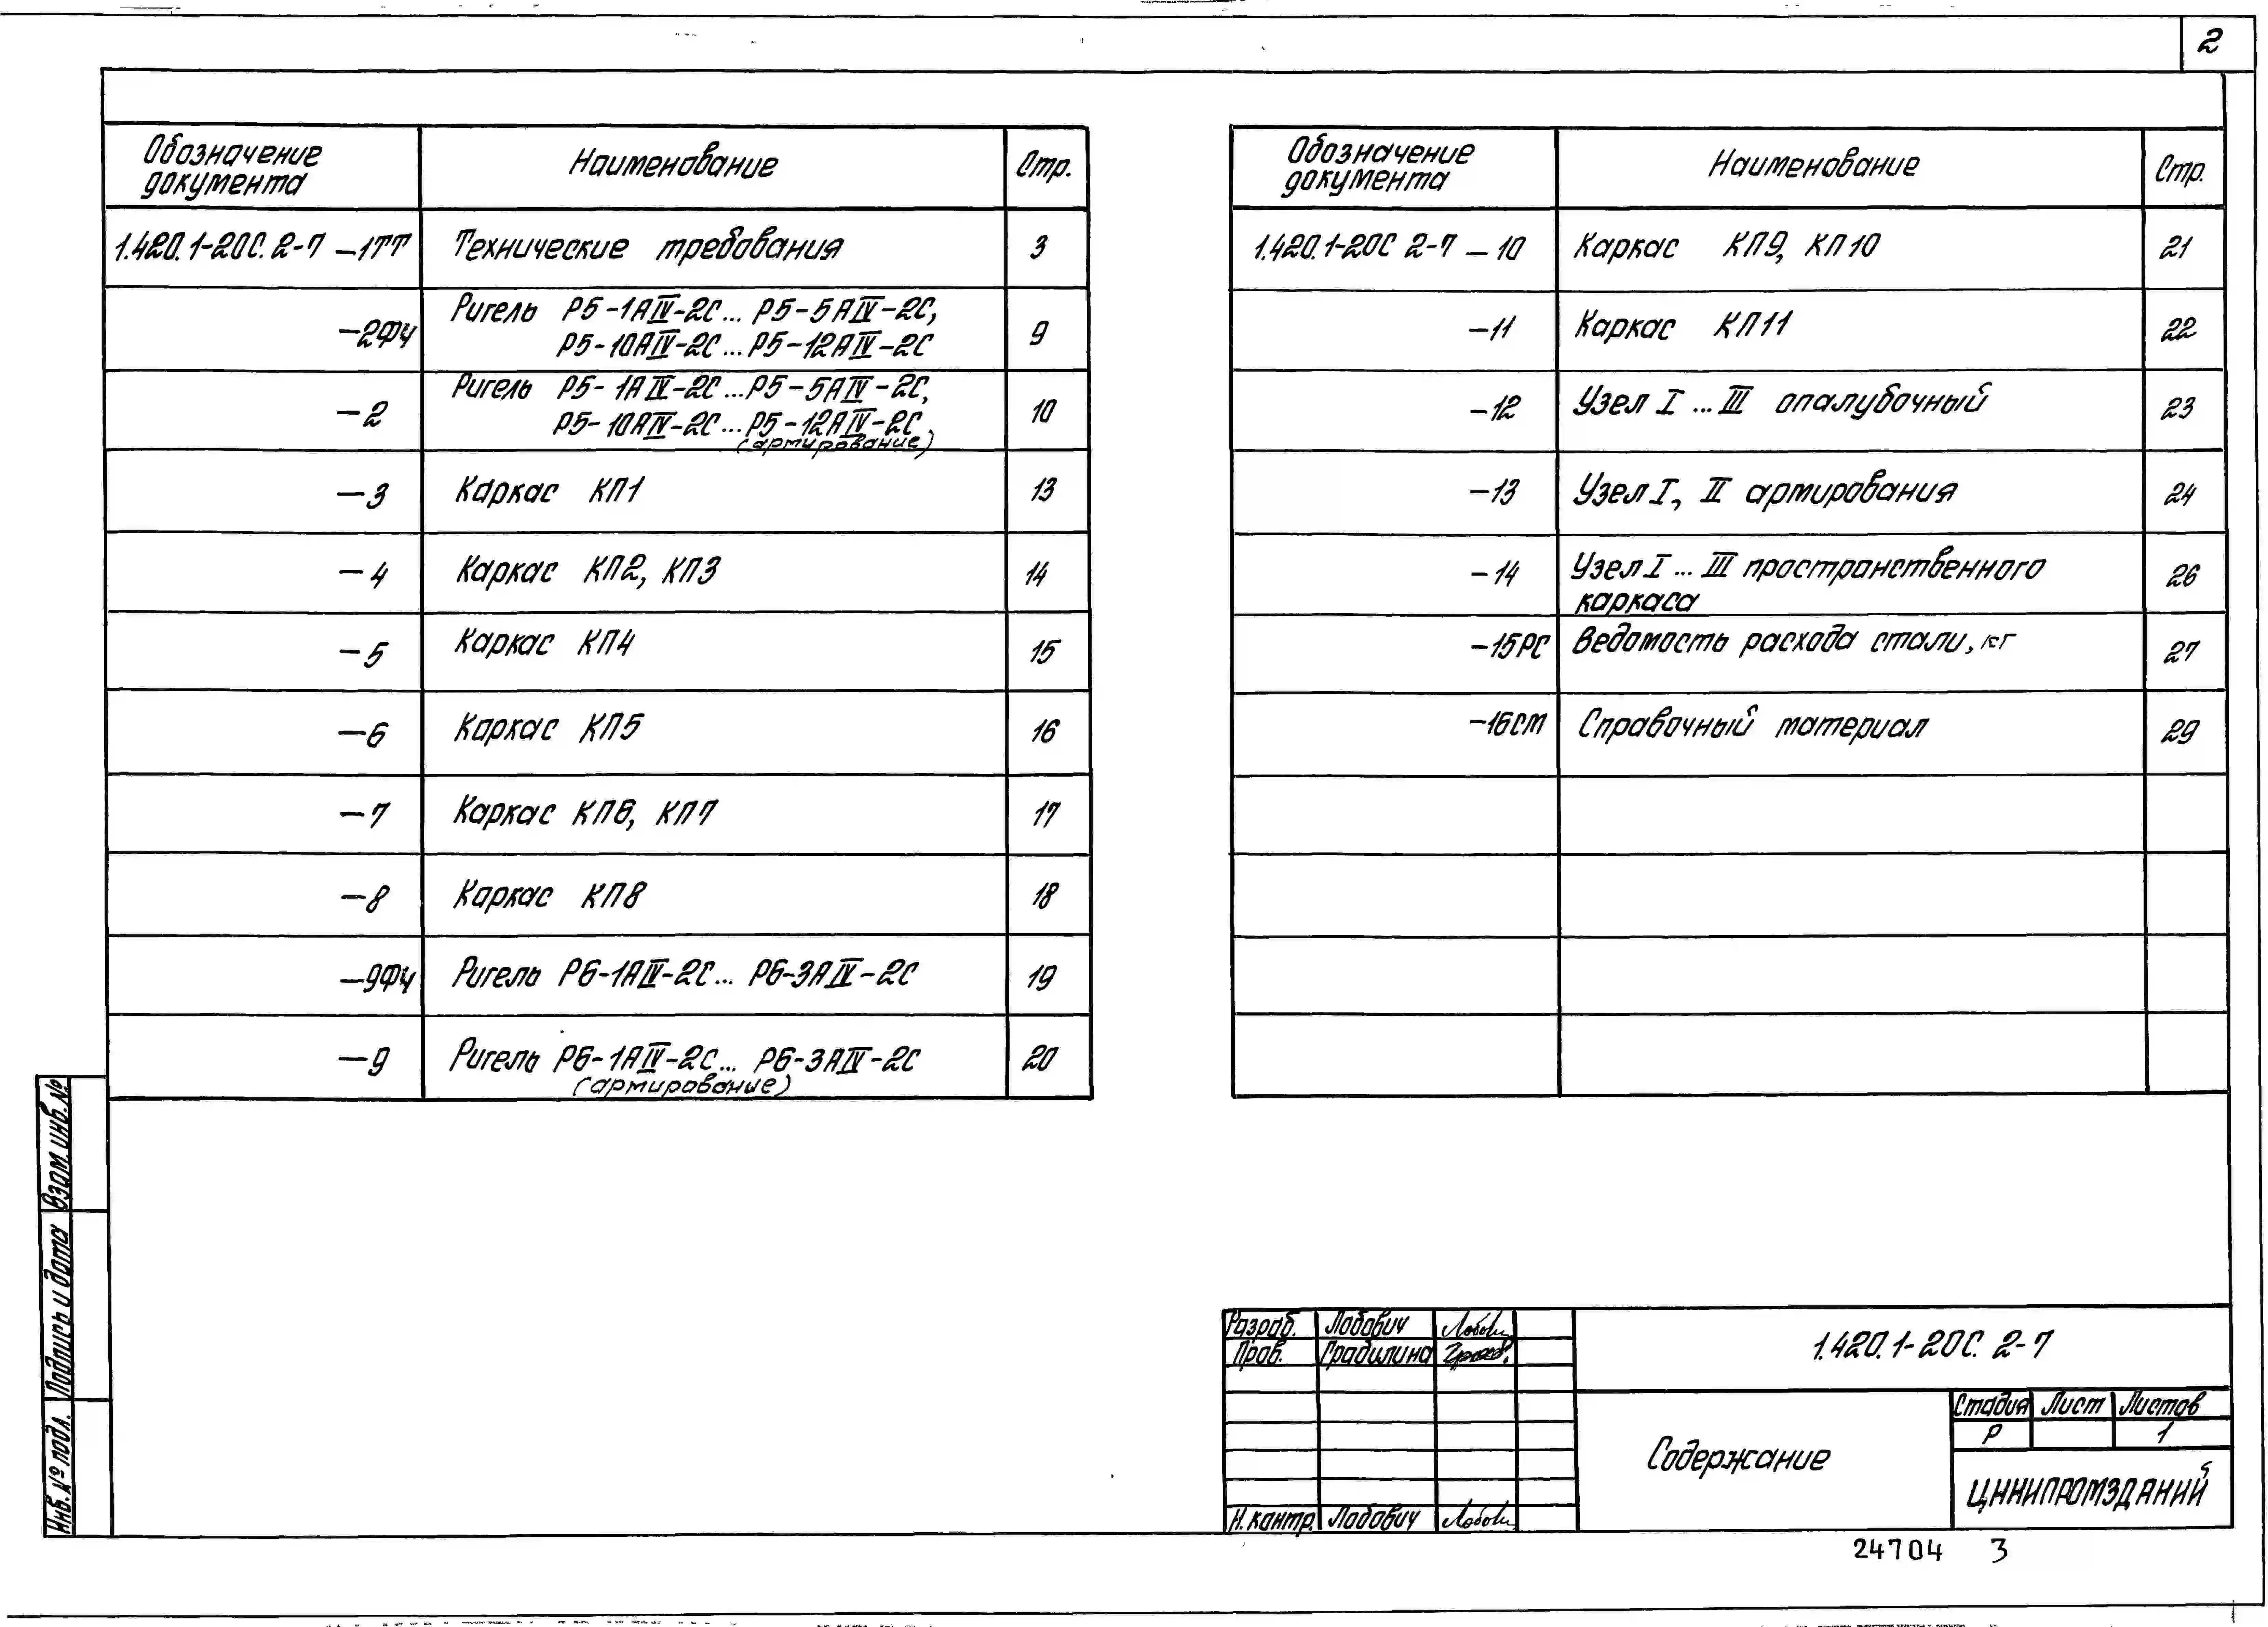 2
Обозначение документа Наименование Стр.
1.420.1-20С.2-7 -1ТТ Технические требования 3
-2ФЧ Ригель Р5-1АIV-2С... Р5-5АIV-2С, 9
Р5-10АIV-2С...Р5-12АIV-2С
-2 Ригель Р5-1АIV-2С...Р5-5АIV-2С, 10
Р5-10АIV-2С...Р5-12АIV-2С
(армирование)
-3 Каркас КП1 13
-4 Каркас КП2, КП3 14
-5 Каркас КП4 15
-6 Каркас КП5 16
-7 Каркас КП6, КП7 17
-8 Каркас КП8 18
-9ФЧ Ригель Р6-1АIV-2С... Р6-3АIV-2С 19
-9 Ригель Р6-1АIV-2С... Р6-3АIV-2С 20
(армирование)
Обозначение документа Наименование Стр.
1.420.1-20С 2-7 -10 Каркас КП9, КП10 21
-11 Каркас КП11 22
-12 Узел I ... III опалубочный 23
-13 Узел I, II армирования 24
-14 Узел I ... III пространственного 26
каркаса
-15РС Ведомость расхода стали, кг 27
-16СМ Справочный материал 29
Взам. инв. №
Подпись и дата
Инв. № подл.
Разраб. Лобович
Пров. Градилина
Н. контр. Лобович
1.420.1-20С. 2-7
Содержание
Стадия Лист Листов
Р 1
ЦНИИПРОМЗДАНИЙ
24704 3